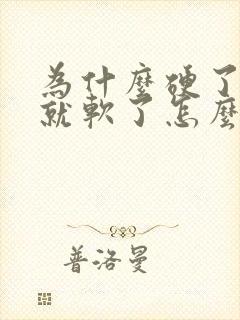 為什麼硬了
就軟了怎麼
普洛曼